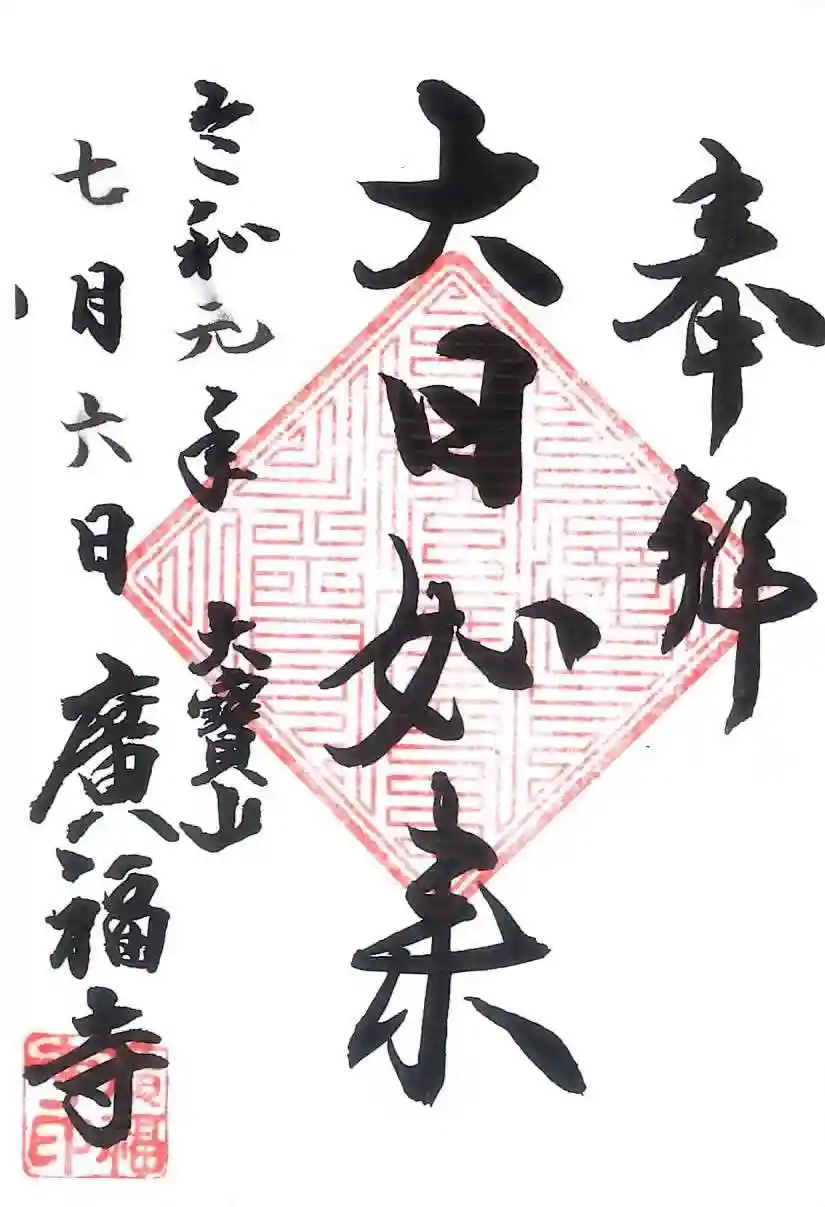 奉拝
大日如来
令和元年
大寶山
七月六日
廣福寺